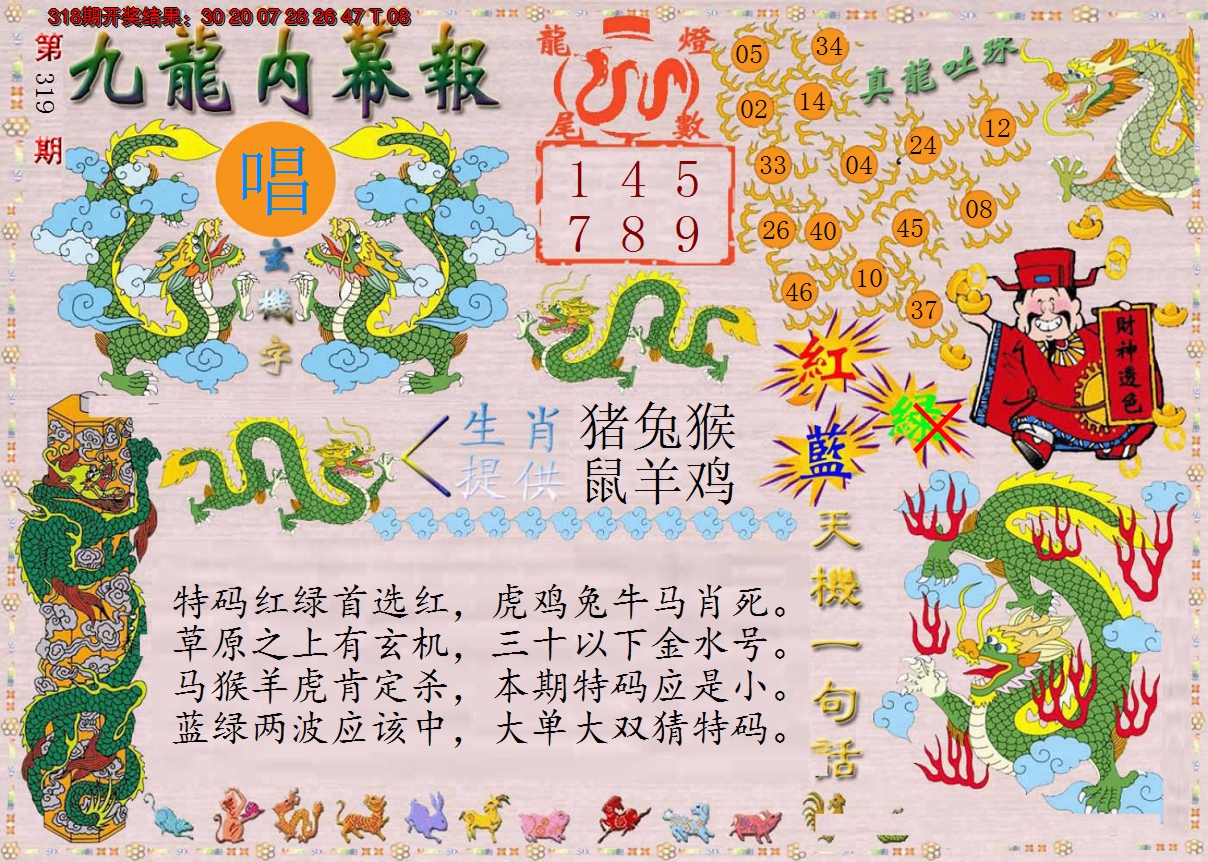 318期开奖结果：30 20 07 28 26 47 T 08
第319期
九龍内幕報
唱
玄機字
龍燈
尾數
1 4 5
7 8 9
真龍吐珠
05 34
02 14
12
24
33 04
08
26 40 45
10
46 37
財神透色
紅
綠
藍
生肖 猪兔猴
提供 鼠羊鸡
天機一句話
特码红绿首选红，虎鸡兔牛马肖死。
草原之上有玄机，三十以下金水号。
马猴羊虎肯定杀，本期特码应是小。
蓝绿两波应该中，大单大双猜特码。